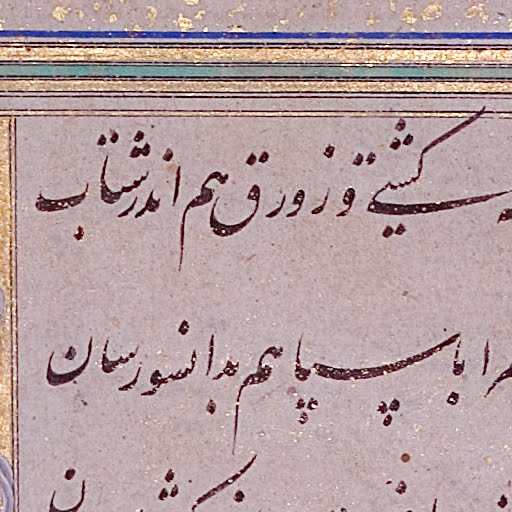 کشتی و زورق هم اندر شتاب
را با سپاهم بدانسو رسان